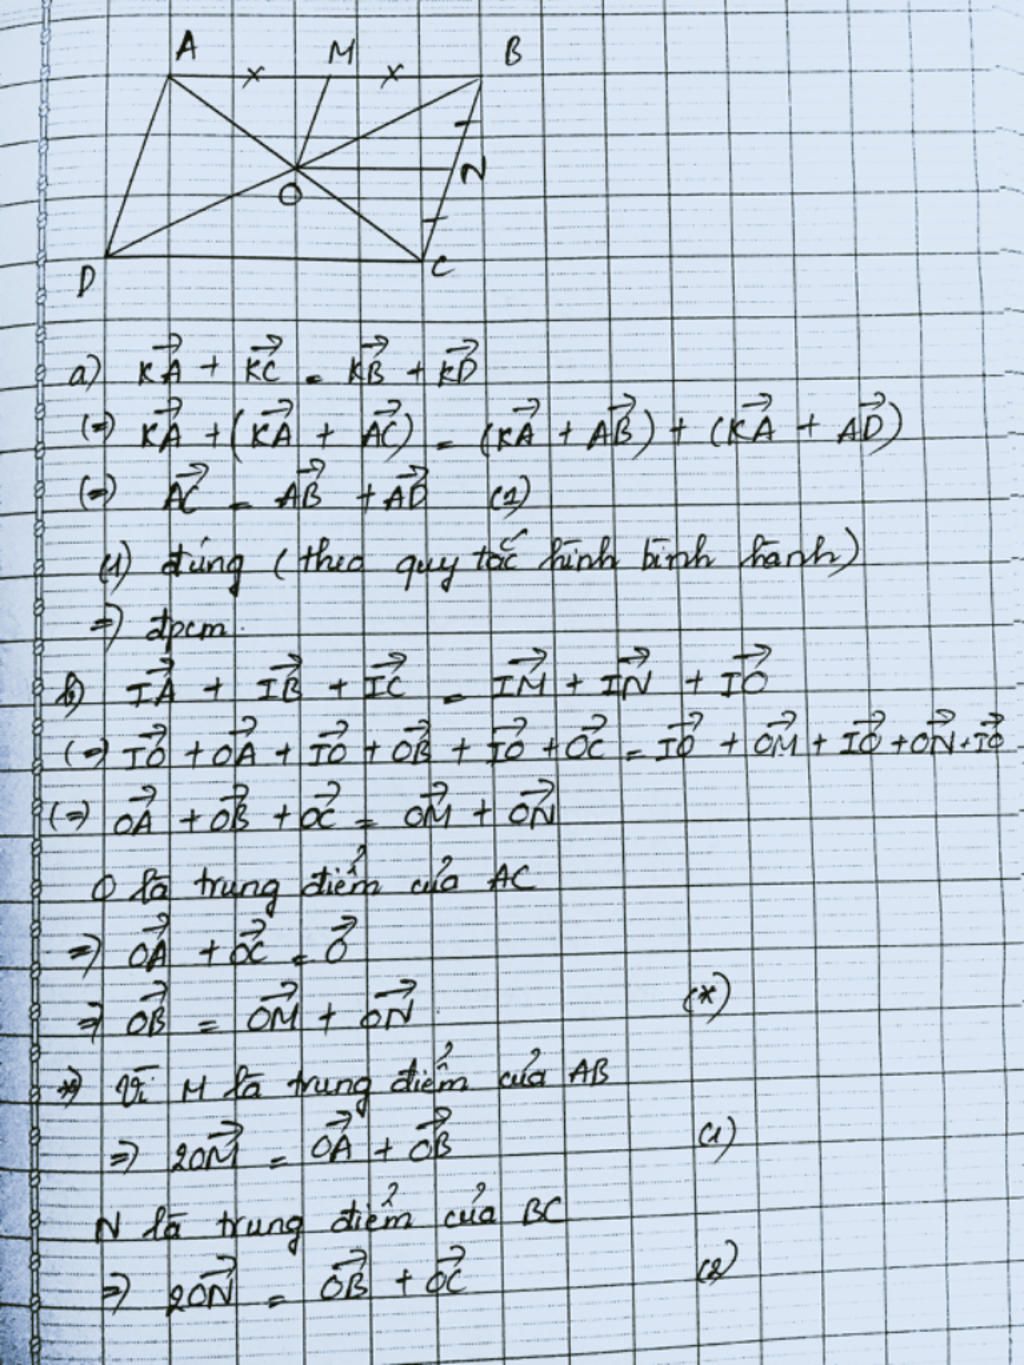 A M B
x x
N
O
D C
a) K⃗A + K⃗C = K⃗B + K⃗D
(=) K⃗A + (K⃗A + A⃗C) = (K⃗A + A⃗B) + (K⃗A + A⃗D)
(=) A⃗C = A⃗B + A⃗D (1)
(1) đúng (theo quy tắc hình bình hành)
=) đpcm.
b) I⃗A + I⃗B + I⃗C = I⃗M + I⃗N + I⃗O
(=) I⃗O + O⃗A + I⃗O + O⃗B + I⃗O + O⃗C = I⃗O + O⃗M + I⃗O + O⃗N + I⃗O
(=) O⃗A + O⃗B + O⃗C = O⃗M + O⃗N
O là trung điểm của AC
=) O⃗A + O⃗C = O⃗
=) O⃗B = O⃗M + O⃗N (*)
*) Vì M là trung điểm của AB
=) 2O⃗M = O⃗A + O⃗B (1)
N là trung điểm của BC
=) 2O⃗N = O⃗B + O⃗C (2)